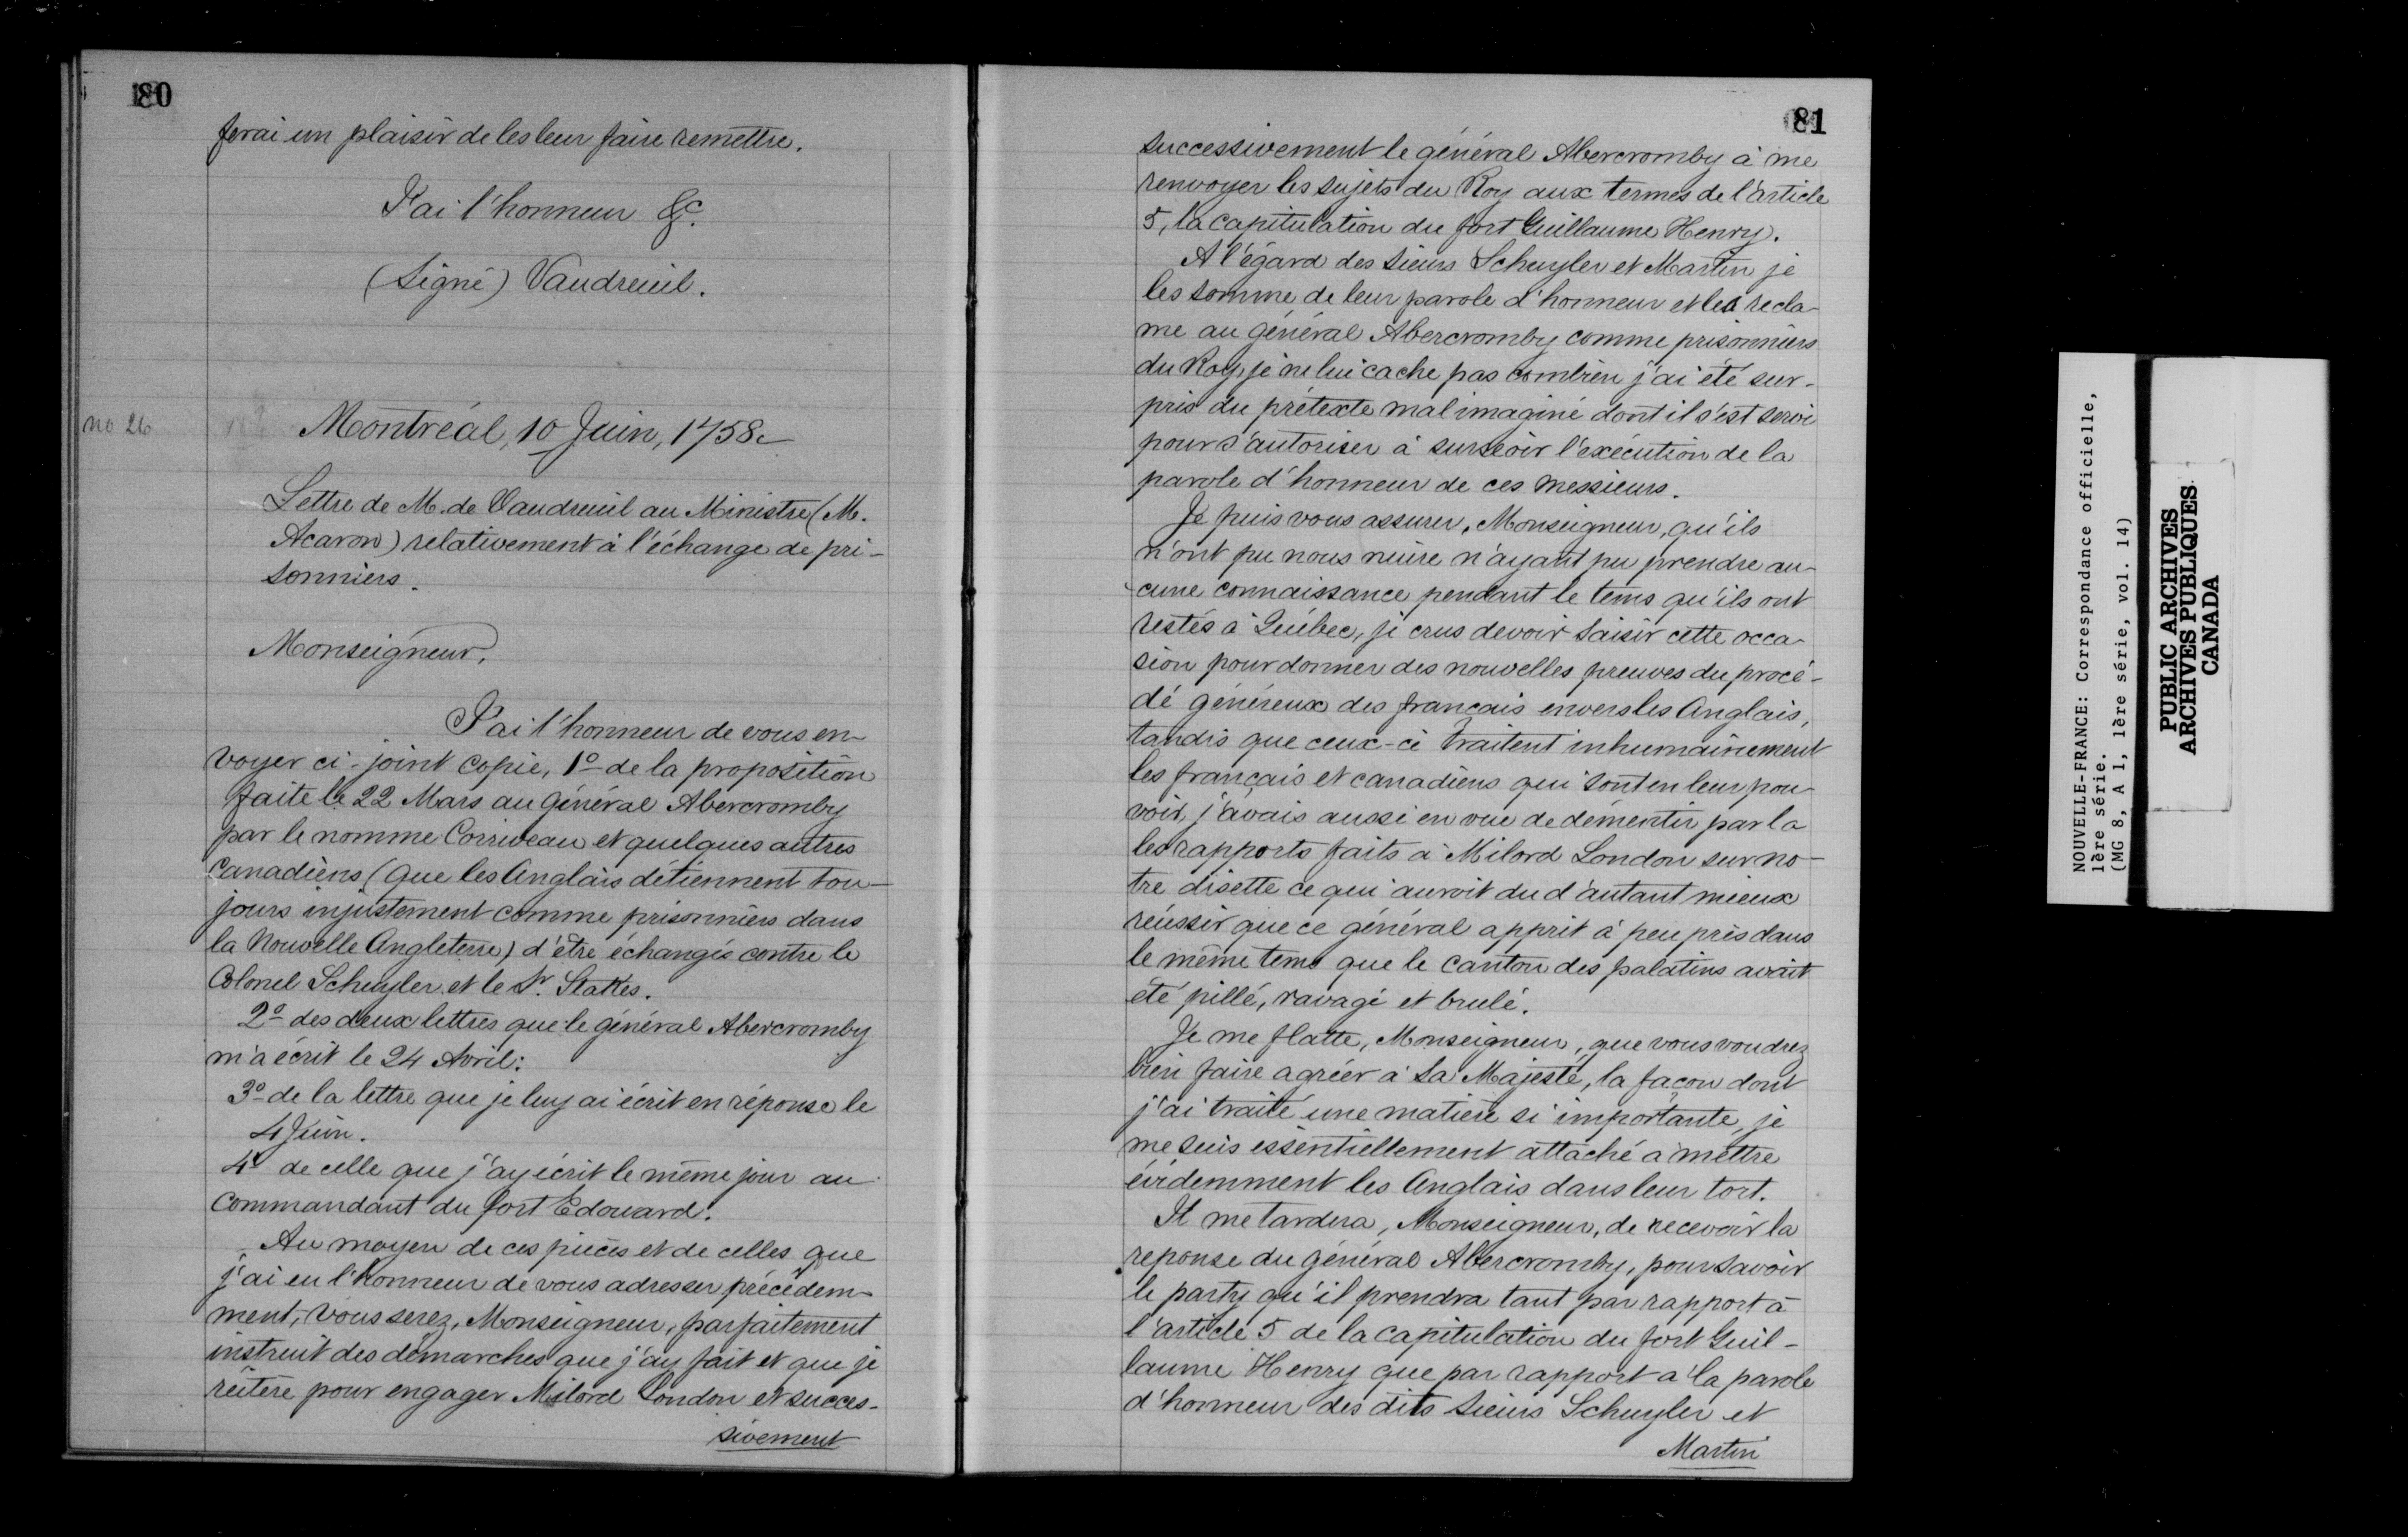 80
ferai un plaisir de les leur faire remettre.
J'ai l'honneur &c.
(Signé) Vaudreuil.
no 26
Montréal, 10 Juin, 1758.
Lettre de M. de Vaudreuil au Ministre (M.
Acaron) relativement à l'échange de pri-
sonniers.
Monseigneur,
J'ai l'honneur de vous en-
voyer ci-joint copie, 1º de la proposition
faite le 22 Mars au Général Abercromby
par le nomme Corriveau et quelques autres
Canadiens (que les Anglais détiennent tou-
jours injustement comme prisonniers dans
la Nouvelle Angleterre) d'être échangés contre le
Colonel Schuyler et le Sr. Stattes.
2º des deux lettres que le général Abercromby
m'a écrit le 24 Avril:
3º de la lettre que je luy ai écrit en réponse le
4 Juin.
4º de celle que j'ay écrit le même jour au
Commandant du fort Edouard.
Au moyen de ces pièces et de celles que
j'ai eu l'honneur de vous adresser précédem-
ment, vous serez, Monseigneur, parfaitement
instruit des démarches que j'ay fait et que je
réitère pour engager Milord London et succes-
sivement
81
successivement le général Abercromby à me
renvoyer les sujets du Roy aux termes de l'article
5, la capitulation du fort Guillaume Henry.
A l'égard des sieurs Schuyler et Martin je
les somme de leur parole d'honneur et les récla-
me au général Abercromby comme prisonniers
du Roy, je ne lui cache pas combien j'ai été sur-
pris du prétexte mal imaginé dont il s'est servi
pour s'autoriser à surseoir l'exécution de la
parole d'honneur de ces messieurs.
Je puis vous assurer, Monseigneur, qu'ils
n'ont pu nous nuire n'ayant pu prendre au-
cune connaissance pendant le tems qu'ils ont
restés à Québec, je crus devoir saisir cette occa-
sion pour donner des nouvelles preuves du procé-
dé généreux des français envers les Anglais,
tandis que ceux-ci traitent inhumainement
les français et canadiens qui sont en leur pou-
voir, j'avais aussi en vue de démentir par la
les rapports faits à Milord London sur no-
tre disette ce qui auroit du d'autant mieux
réussir que ce général apprit à peu près dans
le même tems que le canton des palatins avait
été pillé, ravagé et brulé.
Je me flatte, Monseigneur, que vous voudrez
bien faire agréer à Sa Majesté, la façon dont
j'ai traité une matière si importante, je
me suis essentiellement attaché à mettre
évidemment les Anglais dans leur tort.
Il me tardera, Monseigneur, de recevoir la
reponse du général Abercromby, pour savoir
le party qu'il prendra tant par rapport à
l'article 5 de la capitulation du fort Guil-
laume Henry que par rapport a la parole
d'honneur des dits Sieurs Schuyler et
Martin
NOUVELLE-FRANCE: Correspondance officielle,
1ère série.
(MG 8, A 1, 1ère série, vol. 14)
PUBLIC ARCHIVES
ARCHIVES PUBLIQUES
CANADA